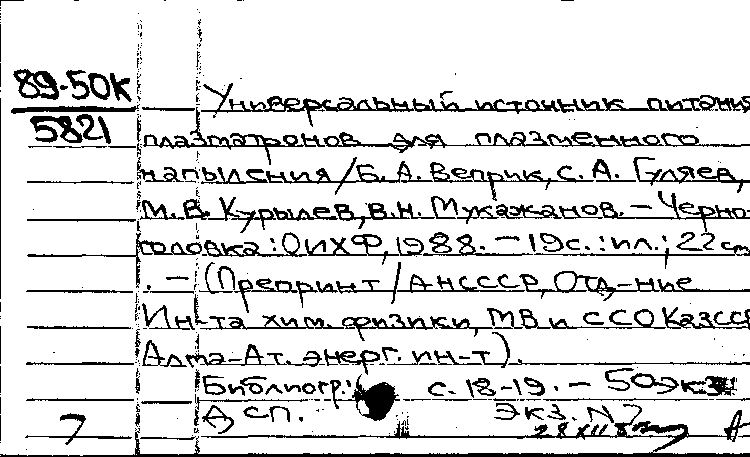 89-50К
5821
Универсальный источник питания
плазматронов для плазменного
напыления / Б. А. Веприк, С. А. Гуляев,
М. В. Курылев, В. Н. Мукажанов. – Черно-
головка : ОИХФ, 1988. – 19 с. : ил. ; 22 см
. – (Препринт / АН СССР, Отд-ние
Ин-та хим. физики, МВ и ССО КазССР
Алма-Ат. энерг. ин-т).
Библиогр.: с. 18-19. – 50 экз
ДСП. Экз. N
7
28 XII
А